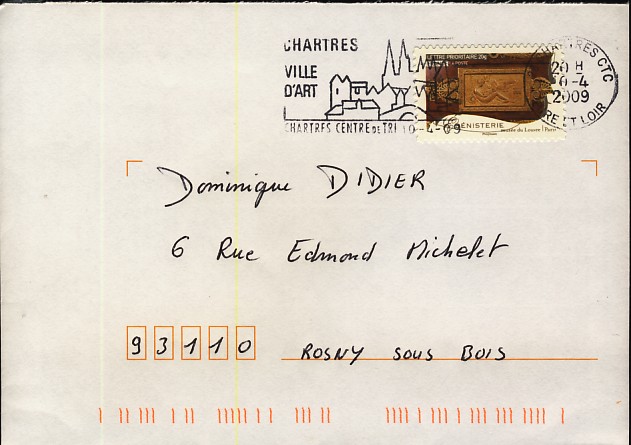 CHARTRES
VILLE
D'ART
CHARTRES CENTRE DE TRI 10-4-09
LETTRE PRIORITAIRE 20g
ÉBÉNISTERIE
musée du Louvre | Paris
CHARTRES CTC
20 H
10-4
2009
EURE ET LOIR
Dominique DIDIER
6 Rue Edmond Michelet
93110 ROSNY SOUS BOIS